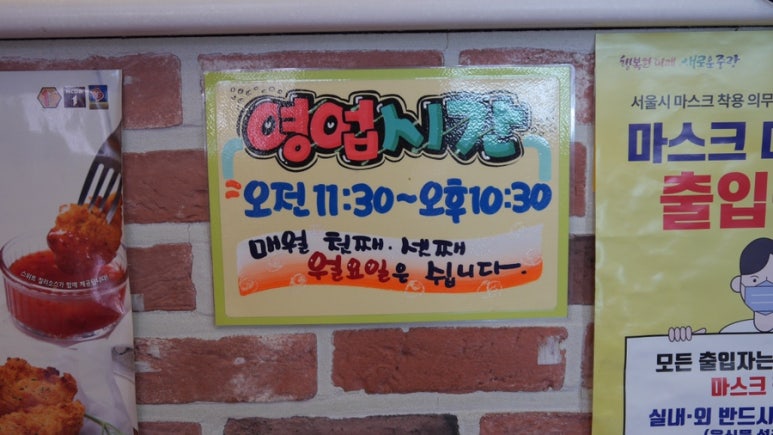 영업시간
오전 11:30~오후10:30
매월 첫째·셋째
월요일은 쉽니다.
행복한 미래 새로운 중랑
서울시 마스크 착용 의무
마스크
출입
모든 출입자는
마스크
실내·외 반드시